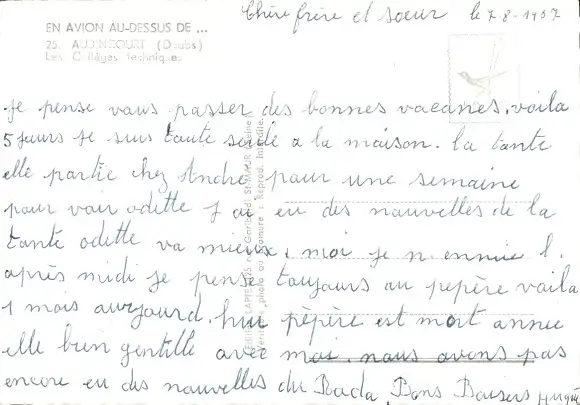 Chère frère et soeur le 7-8-1967
EN AVION AU-DESSUS DE ...
25. AUDINCOURT (Doubs)
Les Collèges Techniques
je pense vous passer des bonnes vacances. voila
5 jours je suis toute seule a la maison. la tante
elle partie chez André pour une semaine
pour voir odette j ai eu des nouvelles de la
tante odette va mieux, moi je n ennuie l.
après midi je pense toujours au pepère voila
1 mois aurjourd. hui pèpère est mort annie
elle bien gentille avec moi. nous avons pas
encore eu des nouvelles du Dada Bons Baisers
LAPIE
ST-MAUR (Seine)
Reprod. Interdite